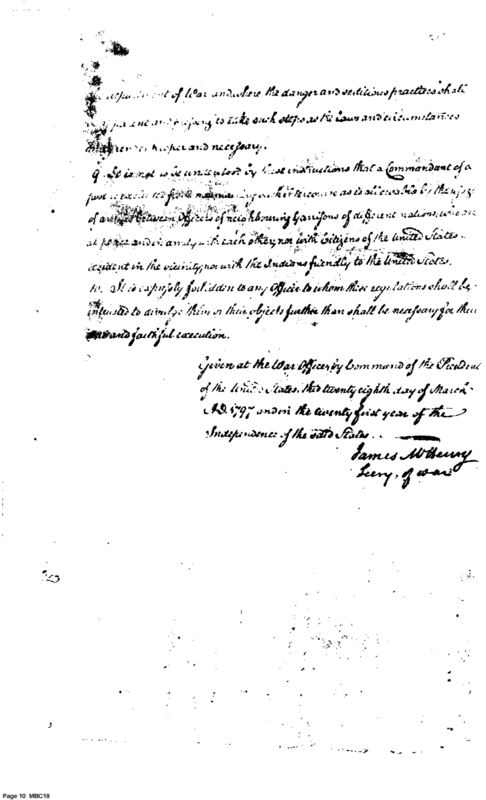 department of War and where the danger and seditious practices shall
to take such steps as the laws and circumstances
proper and necessary.
9. It is not to be understood by these instructions that a Commandant of a
post is from intercourse as is allowable by the usage
of armies between officers of neighbouring Garrisons of different nations, who are
at peace and in amity with each other, nor with Citizens of the United States
resident in the vicinity, nor with the Indians friendly to the United States.
10. It is expressly forbidden to any Officer to whom these regulations shall be
intrusted to divulge them or their objects further than shall be necessary for their
and faithful execution.
Given at the War Office, by Command of the President
of the United States, this twenty eighth day of March
A.D. 1797 and in the twenty first year of the
Independence of the said States.
James McHenry
Secry. of war
Page 10 MBC18